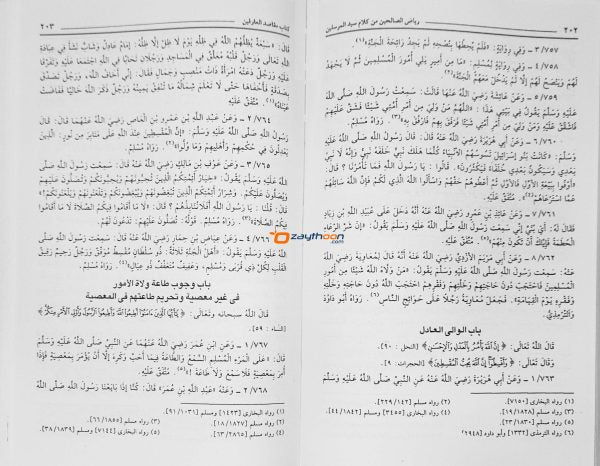 ٢٠٢ رياض الصالحين من كلام سيد المرسلين
٣/٧٥٧ - وَفِي رِوَايَةٍ: «فَلَمْ يُحِطْهَا بِنُصْحِهِ لَمْ يَجِدْ رَائِحَةَ الْجَنَّةِ»
٤/٧٥٨ - وَفِي رِوَايَةٍ لِمُسْلِمٍ: «مَا مِنْ أَمِيرٍ يَلِي أُمُورَ الْمُسْلِمِينَ ثُمَّ لَا يَجْهَدُ
لَهُمْ وَيَنْصَحُ لَهُمْ إِلَّا لَمْ يَدْخُلْ مَعَهُمُ الْجَنَّةَ»
٥/٧٥٩ - وَعَنْ عَائِشَةَ رَضِيَ اللَّهُ عَنْهَا قَالَتْ: سَمِعْتُ رَسُولَ اللَّهِ صَلَّى اللَّهُ
عَلَيْهِ وَسَلَّمَ يَقُولُ فِي بَيْتِي هَذَا: «اللَّهُمَّ مَنْ وَلِيَ مِنْ أَمْرِ أُمَّتِي شَيْئًا فَشَقَّ عَلَيْهِمْ
فَاشْقُقْ عَلَيْهِ وَمَنْ وَلِيَ مِنْ أَمْرِ أُمَّتِي شَيْئًا فَرَفَقَ بِهِمْ فَارْفُقْ بِهِ»(٣). رَوَاهُ مُسْلِمٌ.
٦/٧٦٠ - وَعَنْ أَبِي هُرَيْرَةَ رَضِيَ اللَّهُ عَنْهُ قَالَ: قَالَ رَسُولُ اللَّهِ صَلَّى اللَّهُ عَلَيْهِ
وَسَلَّمَ: «كَانَتْ بَنُو إِسْرَائِيلَ تَسُوسُهُمُ الْأَنْبِيَاءُ كُلَّمَا هَلَكَ نَبِيٌّ خَلَفَهُ نَبِيٌّ وَإِنَّهُ لَا نَبِيَّ
بَعْدِي وَسَيَكُونُ بَعْدِي خُلَفَاءُ فَيَكْثُرُونَ». قَالُوا: يَا رَسُولَ اللَّهِ فَمَا تَأْمُرُنَا؟ قَالَ:
«أَوْفُوا بِبَيْعَةِ الْأَوَّلِ فَالْأَوَّلِ ثُمَّ أَعْطُوهُمْ حَقَّهُمْ وَاسْأَلُوا اللَّهَ الَّذِي لَكُمْ فَإِنَّ اللَّهَ سَائِلُهُمْ
عَمَّا اسْتَرْعَاهُمْ»(٤). مُتَّفَقٌ عَلَيْهِ.
٧/٧٦١ - وَعَنْ عَائِذِ بْنِ عَمْرٍو رَضِيَ اللَّهُ عَنْهُ أَنَّهُ دَخَلَ عَلَى عُبَيْدِ اللَّهِ بْنِ زِيَادٍ
فَقَالَ لَهُ: أَيْ بُنَيَّ إِنِّي سَمِعْتُ رَسُولَ اللَّهِ صَلَّى اللَّهُ عَلَيْهِ وَسَلَّمَ يَقُولُ: «إِنَّ شَرَّ الرِّعَاءِ
الْحُطَمَةُ فَإِيَّاكَ أَنْ تَكُونَ مِنْهُمْ»(٥). مُتَّفَقٌ عَلَيْهِ.
٨/٧٦٢ - وَعَنْ أَبِي مَرْيَمَ الْأَزْدِيِّ رَضِيَ اللَّهُ عَنْهُ أَنَّهُ قَالَ لِمُعَاوِيَةَ رَضِيَ اللَّهُ
عَنْهُ: سَمِعْتُ رَسُولَ اللَّهِ صَلَّى اللَّهُ عَلَيْهِ وَسَلَّمَ يَقُولُ: «مَنْ وَلَّاهُ اللَّهُ شَيْئًا مِنْ أُمُورِ
الْمُسْلِمِينَ فَاحْتَجَبَ دُونَ حَاجَتِهِمْ وَخَلَّتِهِمْ وَفَقْرِهِمُ احْتَجَبَ اللَّهُ دُونَ حَاجَتِهِ وَخَلَّتِهِ
وَفَقْرِهِ يَوْمَ الْقِيَامَةِ». فَجَعَلَ مُعَاوِيَةُ رَجُلًا عَلَى حَوَائِجِ النَّاسِ(٦). رَوَاهُ أَبُو دَاوُدَ
وَالتِّرْمِذِيُّ.
باب الوالي العادل
قَالَ اللَّهُ تَعَالَى: ﴿إِنَّ اللَّهَ يَأْمُرُ بِالْعَدْلِ وَالْإِحْسَانِ﴾ [النحل: ٩٠].
وَقَالَ تَعَالَى: ﴿وَأَقْسِطُوا إِنَّ اللَّهَ يُحِبُّ الْمُقْسِطِينَ﴾ [الحجرات: ٩].
١/٧٦٣ - وَعَنْ أَبِي هُرَيْرَةَ رَضِيَ اللَّهُ عَنْهُ عَنِ النَّبِيِّ صَلَّى اللَّهُ عَلَيْهِ وَسَلَّمَ
(١) رواه البخاري [٧١٥٠] (٢) رواه مسلم [١٤٢/٢٢٩].
(٣) رواه مسلم [١٨٢٨/١٩] (٤) رواه البخاري [٣٤٥٥] ومسلم [١٨٤٢/٤٤].
(٥) رواه مسلم [١٨٣٠/٢٣] (٦) رواه الترمذي [١٣٣٢] وأبو داود [٢٩٤٨]
كتاب مقاصد العارفين ٢٠٣
قَالَ: «سَبْعَةٌ يُظِلُّهُمُ اللَّهُ فِي ظِلِّهِ يَوْمَ لَا ظِلَّ إِلَّا ظِلُّهُ: إِمَامٌ عَادِلٌ وَشَابٌّ نَشَأَ فِي عِبَادَةِ
اللَّهِ تَعَالَى وَرَجُلٌ قَلْبُهُ مُعَلَّقٌ فِي الْمَسَاجِدِ وَرَجُلَانِ تَحَابَّا فِي اللَّهِ اجْتَمَعَا عَلَيْهِ وَتَفَرَّقَا
عَلَيْهِ وَرَجُلٌ دَعَتْهُ امْرَأَةٌ ذَاتُ مَنْصِبٍ وَجَمَالٍ فَقَالَ: إِنِّي أَخَافُ اللَّهَ، وَرَجُلٌ تَصَدَّقَ
بِصَدَقَةٍ فَأَخْفَاهَا حَتَّى لَا تَعْلَمَ شِمَالُهُ مَا تُنْفِقُ يَمِينُهُ وَرَجُلٌ ذَكَرَ اللَّهَ خَالِيًا فَفَاضَتْ
عَيْنَاهُ»(١). مُتَّفَقٌ عَلَيْهِ.
٢/٧٦٤ - وَعَنْ عَبْدِ اللَّهِ بْنِ عَمْرِو بْنِ الْعَاصِ رَضِيَ اللَّهُ عَنْهُمَا قَالَ: قَالَ
رَسُولُ اللَّهِ صَلَّى اللَّهُ عَلَيْهِ وَسَلَّمَ: «إِنَّ الْمُقْسِطِينَ عِنْدَ اللَّهِ عَلَى مَنَابِرَ مِنْ نُورٍ: الَّذِينَ
يَعْدِلُونَ فِي حُكْمِهِمْ وَأَهْلِيهِمْ وَمَا وَلُوا»(٢). رَوَاهُ مُسْلِمٌ.
٣/٧٦٥ - وَعَنْ عَوْفِ بْنِ مَالِكٍ رَضِيَ اللَّهُ عَنْهُ قَالَ: سَمِعْتُ رَسُولَ اللَّهِ صَلَّى اللَّهُ
عَلَيْهِ وَسَلَّمَ يَقُولُ: «خِيَارُ أَئِمَّتِكُمُ الَّذِينَ تُحِبُّونَهُمْ وَيُحِبُّونَكُمْ وَتُصَلُّونَ عَلَيْهِمْ
وَيُصَلُّونَ عَلَيْكُمْ. وَشِرَارُ أَئِمَّتِكُمُ الَّذِينَ تُبْغِضُونَهُمْ وَيُبْغِضُونَكُمْ وَتَلْعَنُونَهُمْ وَيَلْعَنُونَكُمْ!»
قَالَ: قُلْنَا: يَا رَسُولَ اللَّهِ أَفَلَا نُنَابِذُهُمْ؟ قَالَ: «لَا مَا أَقَامُوا فِيكُمُ الصَّلَاةَ لَا مَا أَقَامُوا
فِيكُمُ الصَّلَاةَ»(٣). رَوَاهُ مُسْلِمٌ. قَوْلُهُ: تُصَلُّونَ عَلَيْهِمْ: تَدْعُونَ لَهُمْ.
٤/٧٦٦ - وَعَنْ عِيَاضِ بْنِ حِمَارٍ رَضِيَ اللَّهُ عَنْهُ قَالَ: سَمِعْتُ رَسُولَ اللَّهِ صَلَّى
اللَّهُ عَلَيْهِ وَسَلَّمَ يَقُولُ: «أَهْلُ الْجَنَّةِ ثَلَاثَةٌ: ذُو سُلْطَانٍ مُقْسِطٌ مُوَفَّقٌ وَرَجُلٌ رَحِيمٌ رَقِيقُ
الْقَلْبِ لِكُلِّ ذِي قُرْبَى وَمُسْلِمٍ، وَعَفِيفٌ مُتَعَفِّفٌ ذُو عِيَالٍ»(٤). رَوَاهُ مُسْلِمٌ.
باب وجوب طاعة ولاة الأمور
في غير معصية وتحريم طاعتهم في المعصية
قَالَ اللَّهُ سبحانه وتَعَالَى: ﴿يَا أَيُّهَا الَّذِينَ آمَنُوا أَطِيعُوا اللَّهَ وَأَطِيعُوا الرَّسُولَ وَأُولِي الْأَمْرِ مِنْكُمْ﴾
[النساء: ٥٩].
١/٧٦٧ - وَعَنِ ابْنِ عُمَرَ رَضِيَ اللَّهُ عَنْهُمَا عَنِ النَّبِيِّ صَلَّى اللَّهُ عَلَيْهِ وَسَلَّمَ
قَالَ: «عَلَى الْمَرْءِ الْمُسْلِمِ السَّمْعُ وَالطَّاعَةُ فِيمَا أَحَبَّ وَكَرِهَ إِلَّا أَنْ يُؤْمَرَ بِمَعْصِيَةٍ فَإِذَا
أُمِرَ بِمَعْصِيَةٍ فَلَا سَمْعَ وَلَا طَاعَةَ»(٥). مُتَّفَقٌ عَلَيْهِ.
٢/٧٦٨ - وَعَنْهُ «عَبْدِ اللَّهِ بْنِ عُمَرَ» قَالَ: كُنَّا إِذَا بَايَعْنَا رَسُولَ اللَّهِ صَلَّى اللَّهُ
(١) رواه البخاري [١٤٢٣] ومسلم [١٠٣١/٩١].
(٢) رواه مسلم [١٨٢٧/١٨]. (٣) رواه مسلم [١٨٥٥/٦٦].
(٤) رواه مسلم [٢٨٦٥/٦٣]. (٥) رواه البخاري [٧١٤٤] ومسلم [١٨٣٩/٣٨].
zaythoon.com